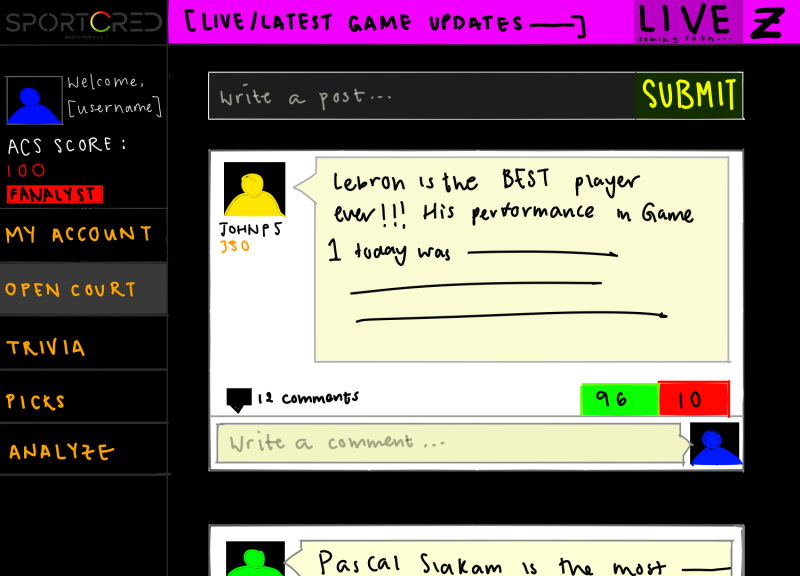 SPORTCRED
[LIVE/LATEST GAME UPDATES ——]
LIVE
coming soon...
Z
Welcome,
[username]
ACS SCORE:
100
FANALYST
MY ACCOUNT
OPEN COURT
TRIVIA
PICKS
ANALYZE
Write a post...
SUBMIT
JOHNP5
350
Lebron is the BEST player
ever!!! His performance in Game
1 today was
12 comments
96
10
Write a comment...
Pascal Siakam is the most